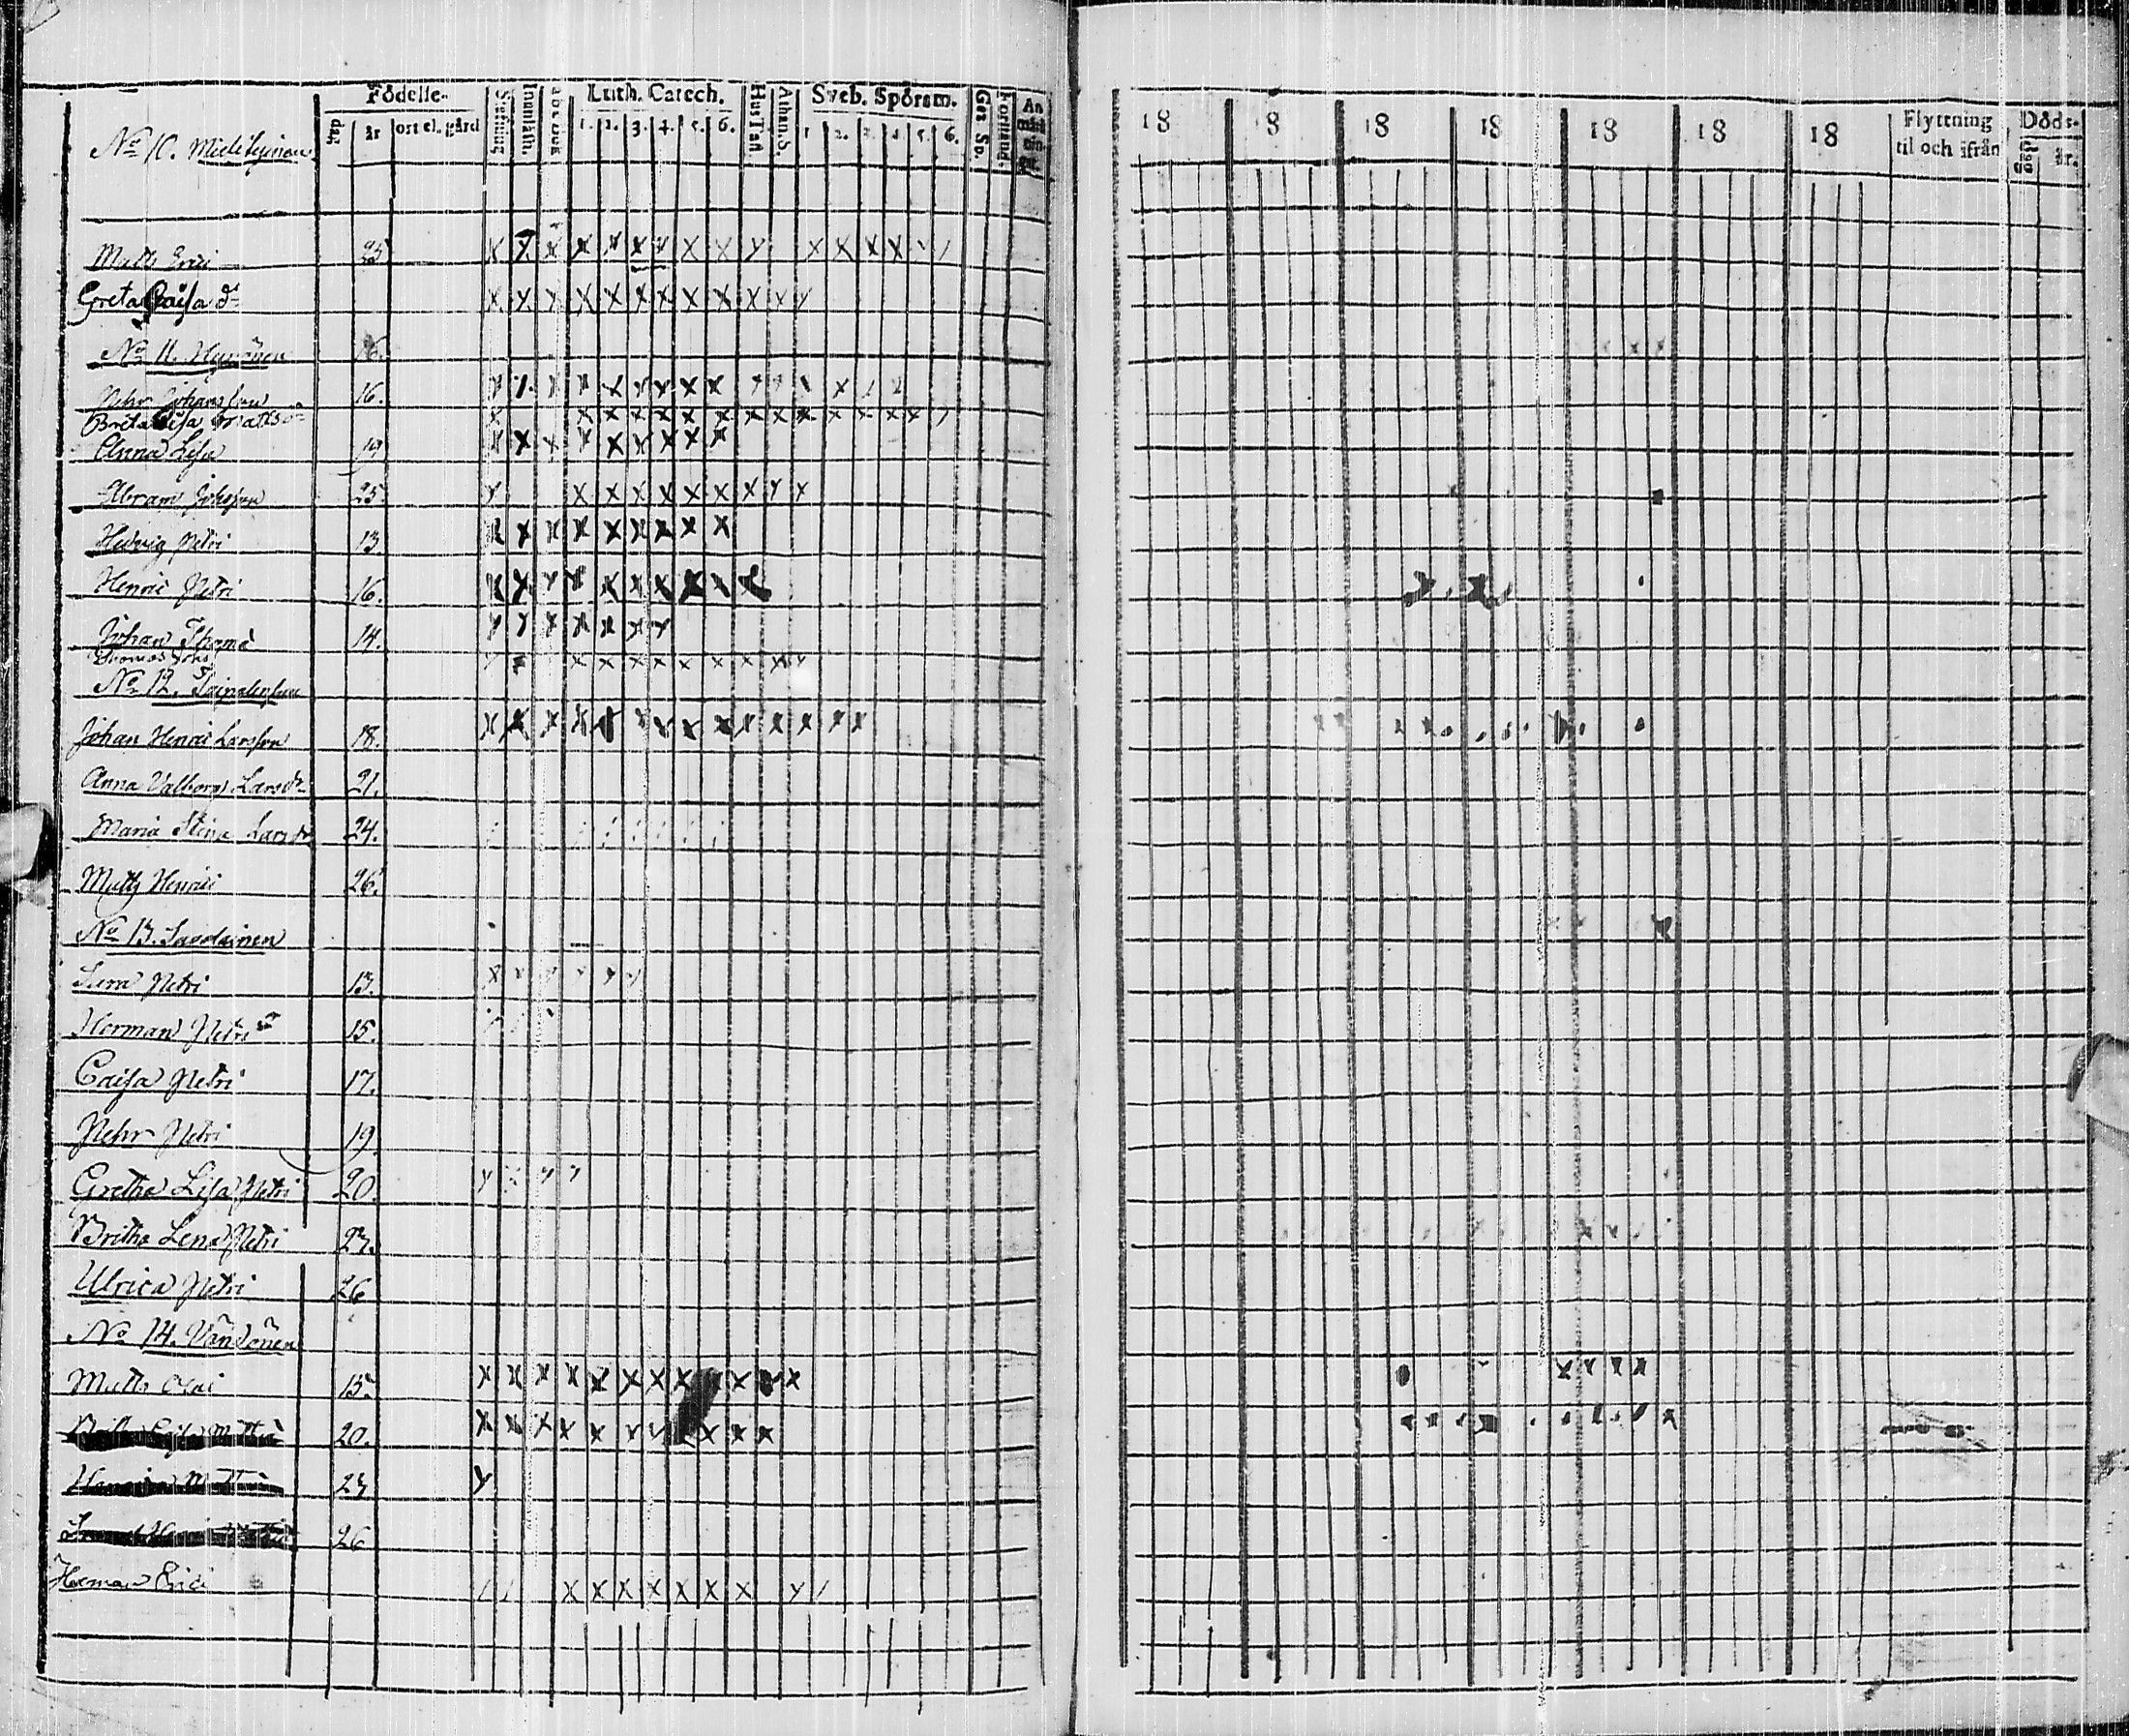 Födelse-
dag
år
ort el. gård
Innanläsn.
abc Bok
Luth. Catech.
1. 2. 3. 4. 5. 6.
Hus Tafl.
Athan. S.
Sveb. Spörsm.
1 2. 3. 4. 5. 6.
Förstånd.
18 18 18 18 18 18 18
Flyttning
til och ifrån
Döds-
dag
år.
No 10.
Matts Erici 25
Greta Caisa dr
No 11.
Pehr Johansson 16.
Brita Lisa Mattsdr
Anna Lisa 19
Abram Johsson 25
Hedvig Petri 13.
Henric Petri 16.
Johan Thomæ 14.
Thomas Johs
No 12.
Johan Henric Larsson 18.
Anna Valborg Larsdr 21.
Maria Stina Larsdr 24.
Matts Henrici 26.
No 13. Savolainen
Petri 13.
Herman Petri 15.
Caisa Petri 17.
Pehr Petri 19
Gretha Lisa Petri 20
Britha Lena Petri 23.
Ulrica Petri 26
No 14.
Matts Olai 15.
20.
23
26
Herman Erici